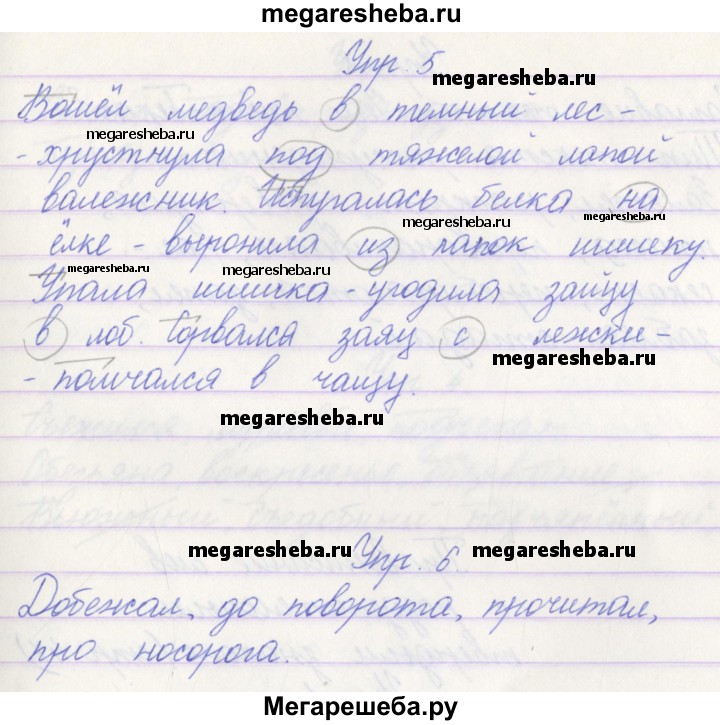 megaresheba.ru
Упр. 5
megaresheba.ru
Вошёл медведь в темный лес -
megaresheba.ru
- хрустнула под тяжелой лапой
валежник. Испугалась белка на
megaresheba.ru
megaresheba.ru
ёлке - выронила из лапок шишку.
megaresheba.ru
megaresheba.ru
Упала шишка - угодила зайцу
в лоб. Сорвался заяц с лежки -
megaresheba.ru
- помчался в чащу.
megaresheba.ru
megaresheba.ru
Упр. 6
megaresheba.ru
Добежал, до поворота, прочитал,
про носорога.
Мегарешеба.ру